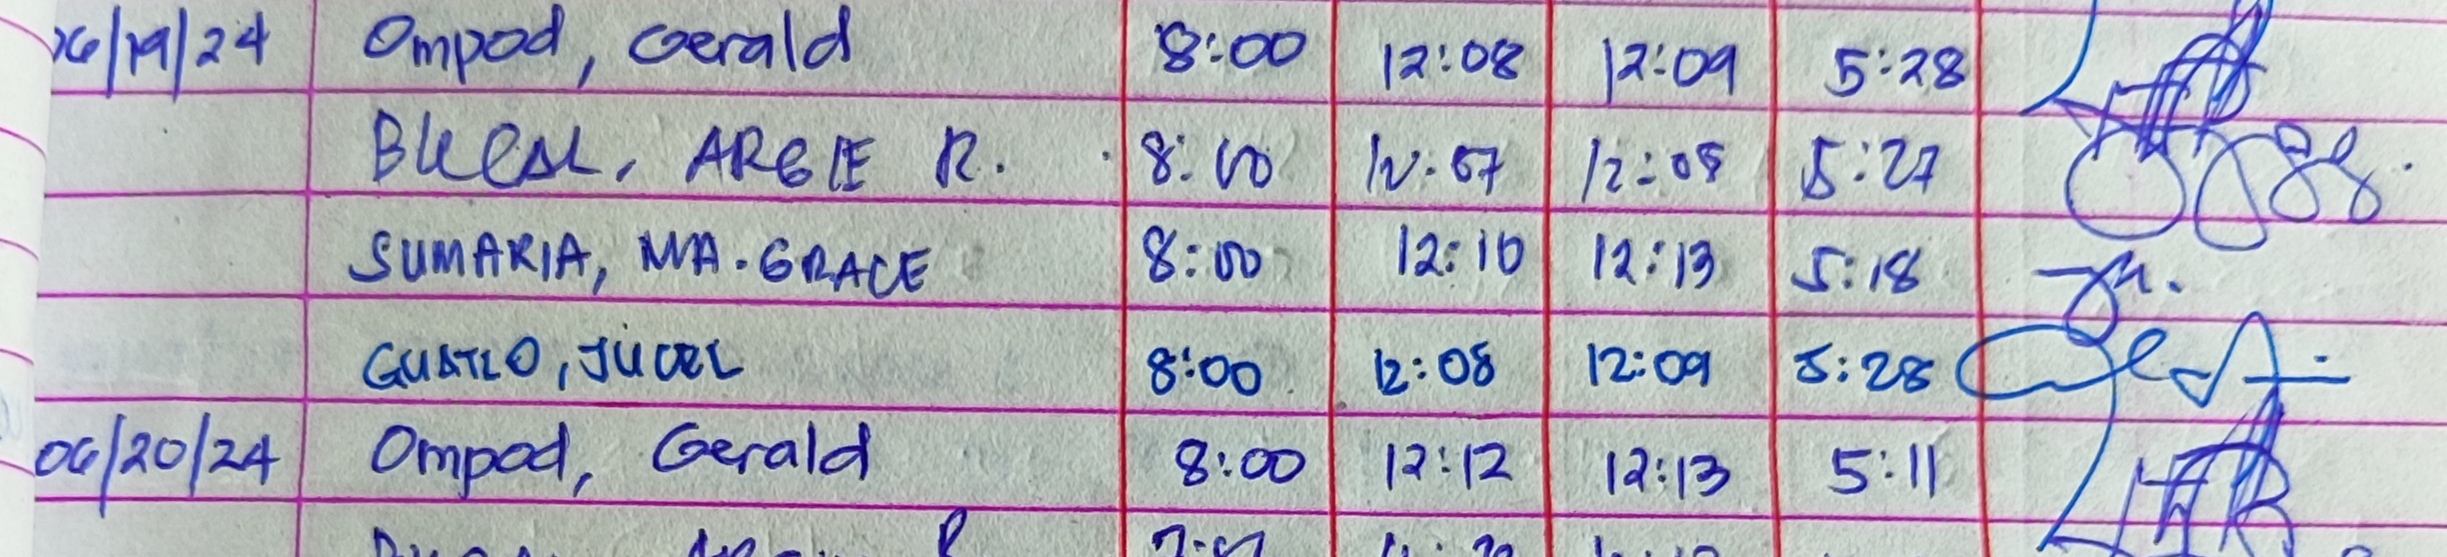 06/19/24 Ompod, Gerald 8:00 12:08 12:09 5:28
ARGIE R. 8:00 12:07 12:08 5:27
SUMARIA, MA. GRACE 8:00 12:10 12:13 5:18
8:00 12:08 12:09 5:28
06/20/24 Ompod, Gerald 8:00 12:12 12:13 5:11